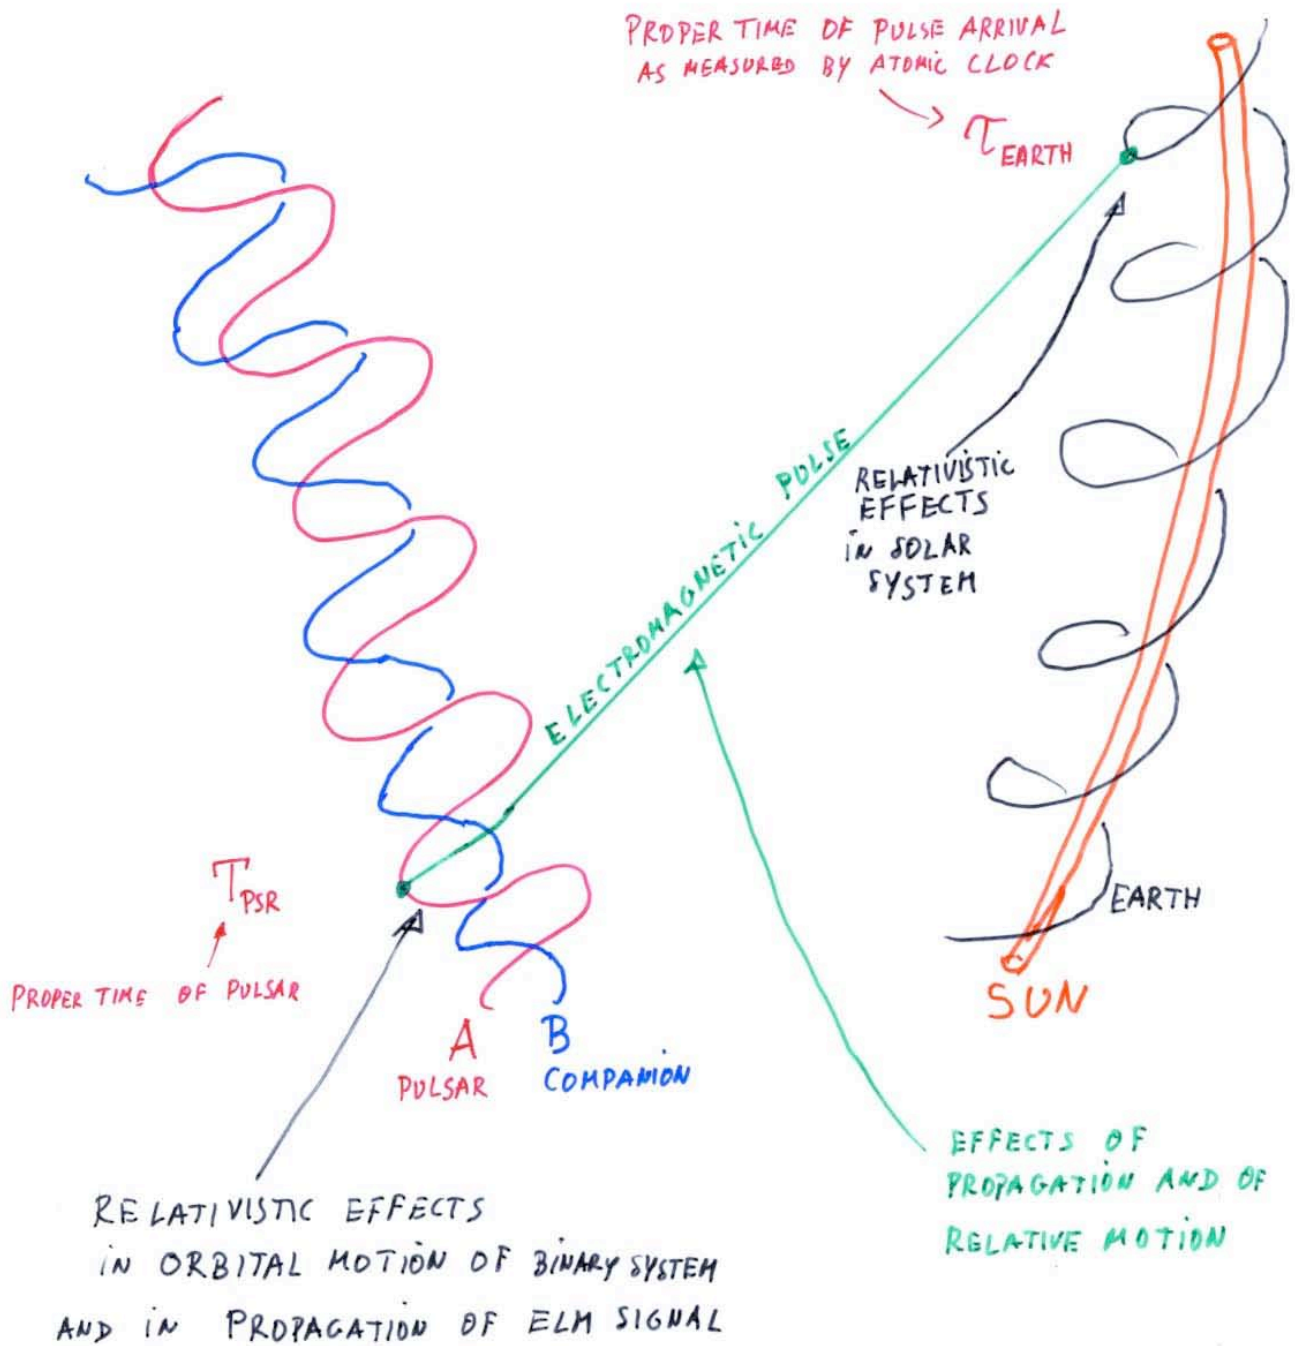 PROPER TIME OF PULSE ARRIVAL
AS MEASURED BY ATOMIC CLOCK
τ EARTH
ELECTROMAGNETIC PULSE
RELATIVISTIC
EFFECTS
IN SOLAR
SYSTEM
T PSR
PROPER TIME OF PULSAR
EARTH
SUN
A
PULSAR
B
COMPANION
EFFECTS OF
PROPAGATION AND OF
RELATIVE MOTION
RELATIVISTIC EFFECTS
IN ORBITAL MOTION OF BINARY SYSTEM
AND IN PROPAGATION OF ELM SIGNAL